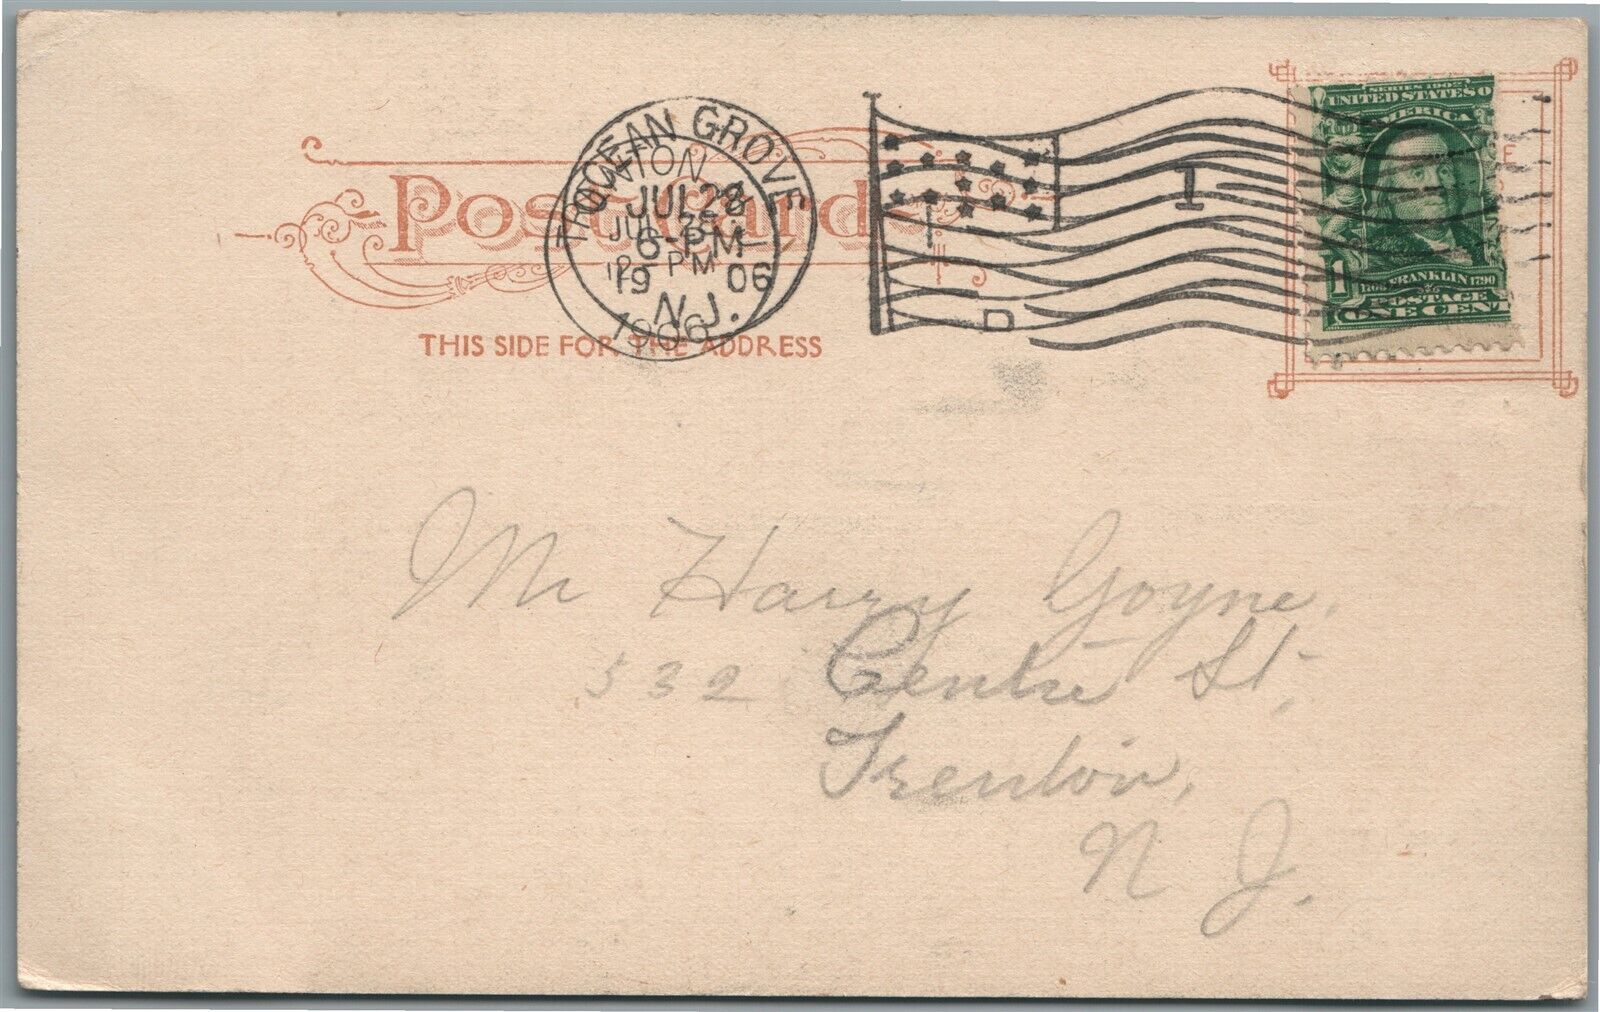 Post Cards
THIS SIDE FOR THE ADDRESS
OCEAN GROVE
JUL 28
6-PM
1906
N.J.
JUL 28
PM
1906
1
D
SERIES 1902
UNITED STATES O
AMERICA
1706 FRANKLIN 1790
1 POSTAGE
ONE CENT
Mr Harry Goyne,
532 Centre St,
Trenton,
N. J.